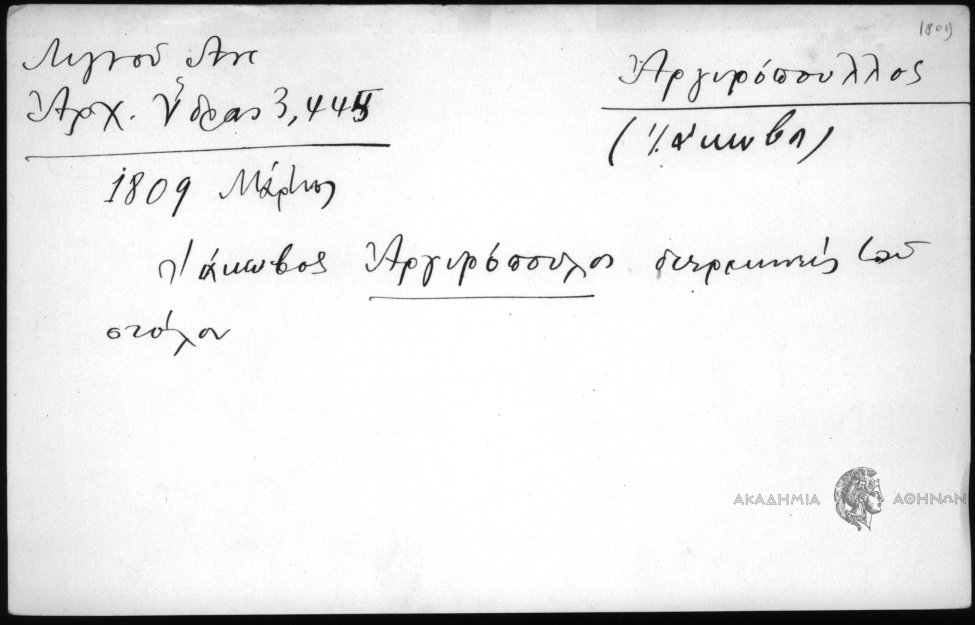 1809
Λιγνού Αντ
Ἀρχ. Ὕδρας 3,445
Ἀργυρόπουλλος
(Ἰάκωβος)
1809 Μάρτιος
Ἰάκωβος Ἀργυρόπουλος διερμηνεύς τοῦ
στόλου
ΑΚΑΔΗΜΙΑ ΑΘΗΝΩΝ